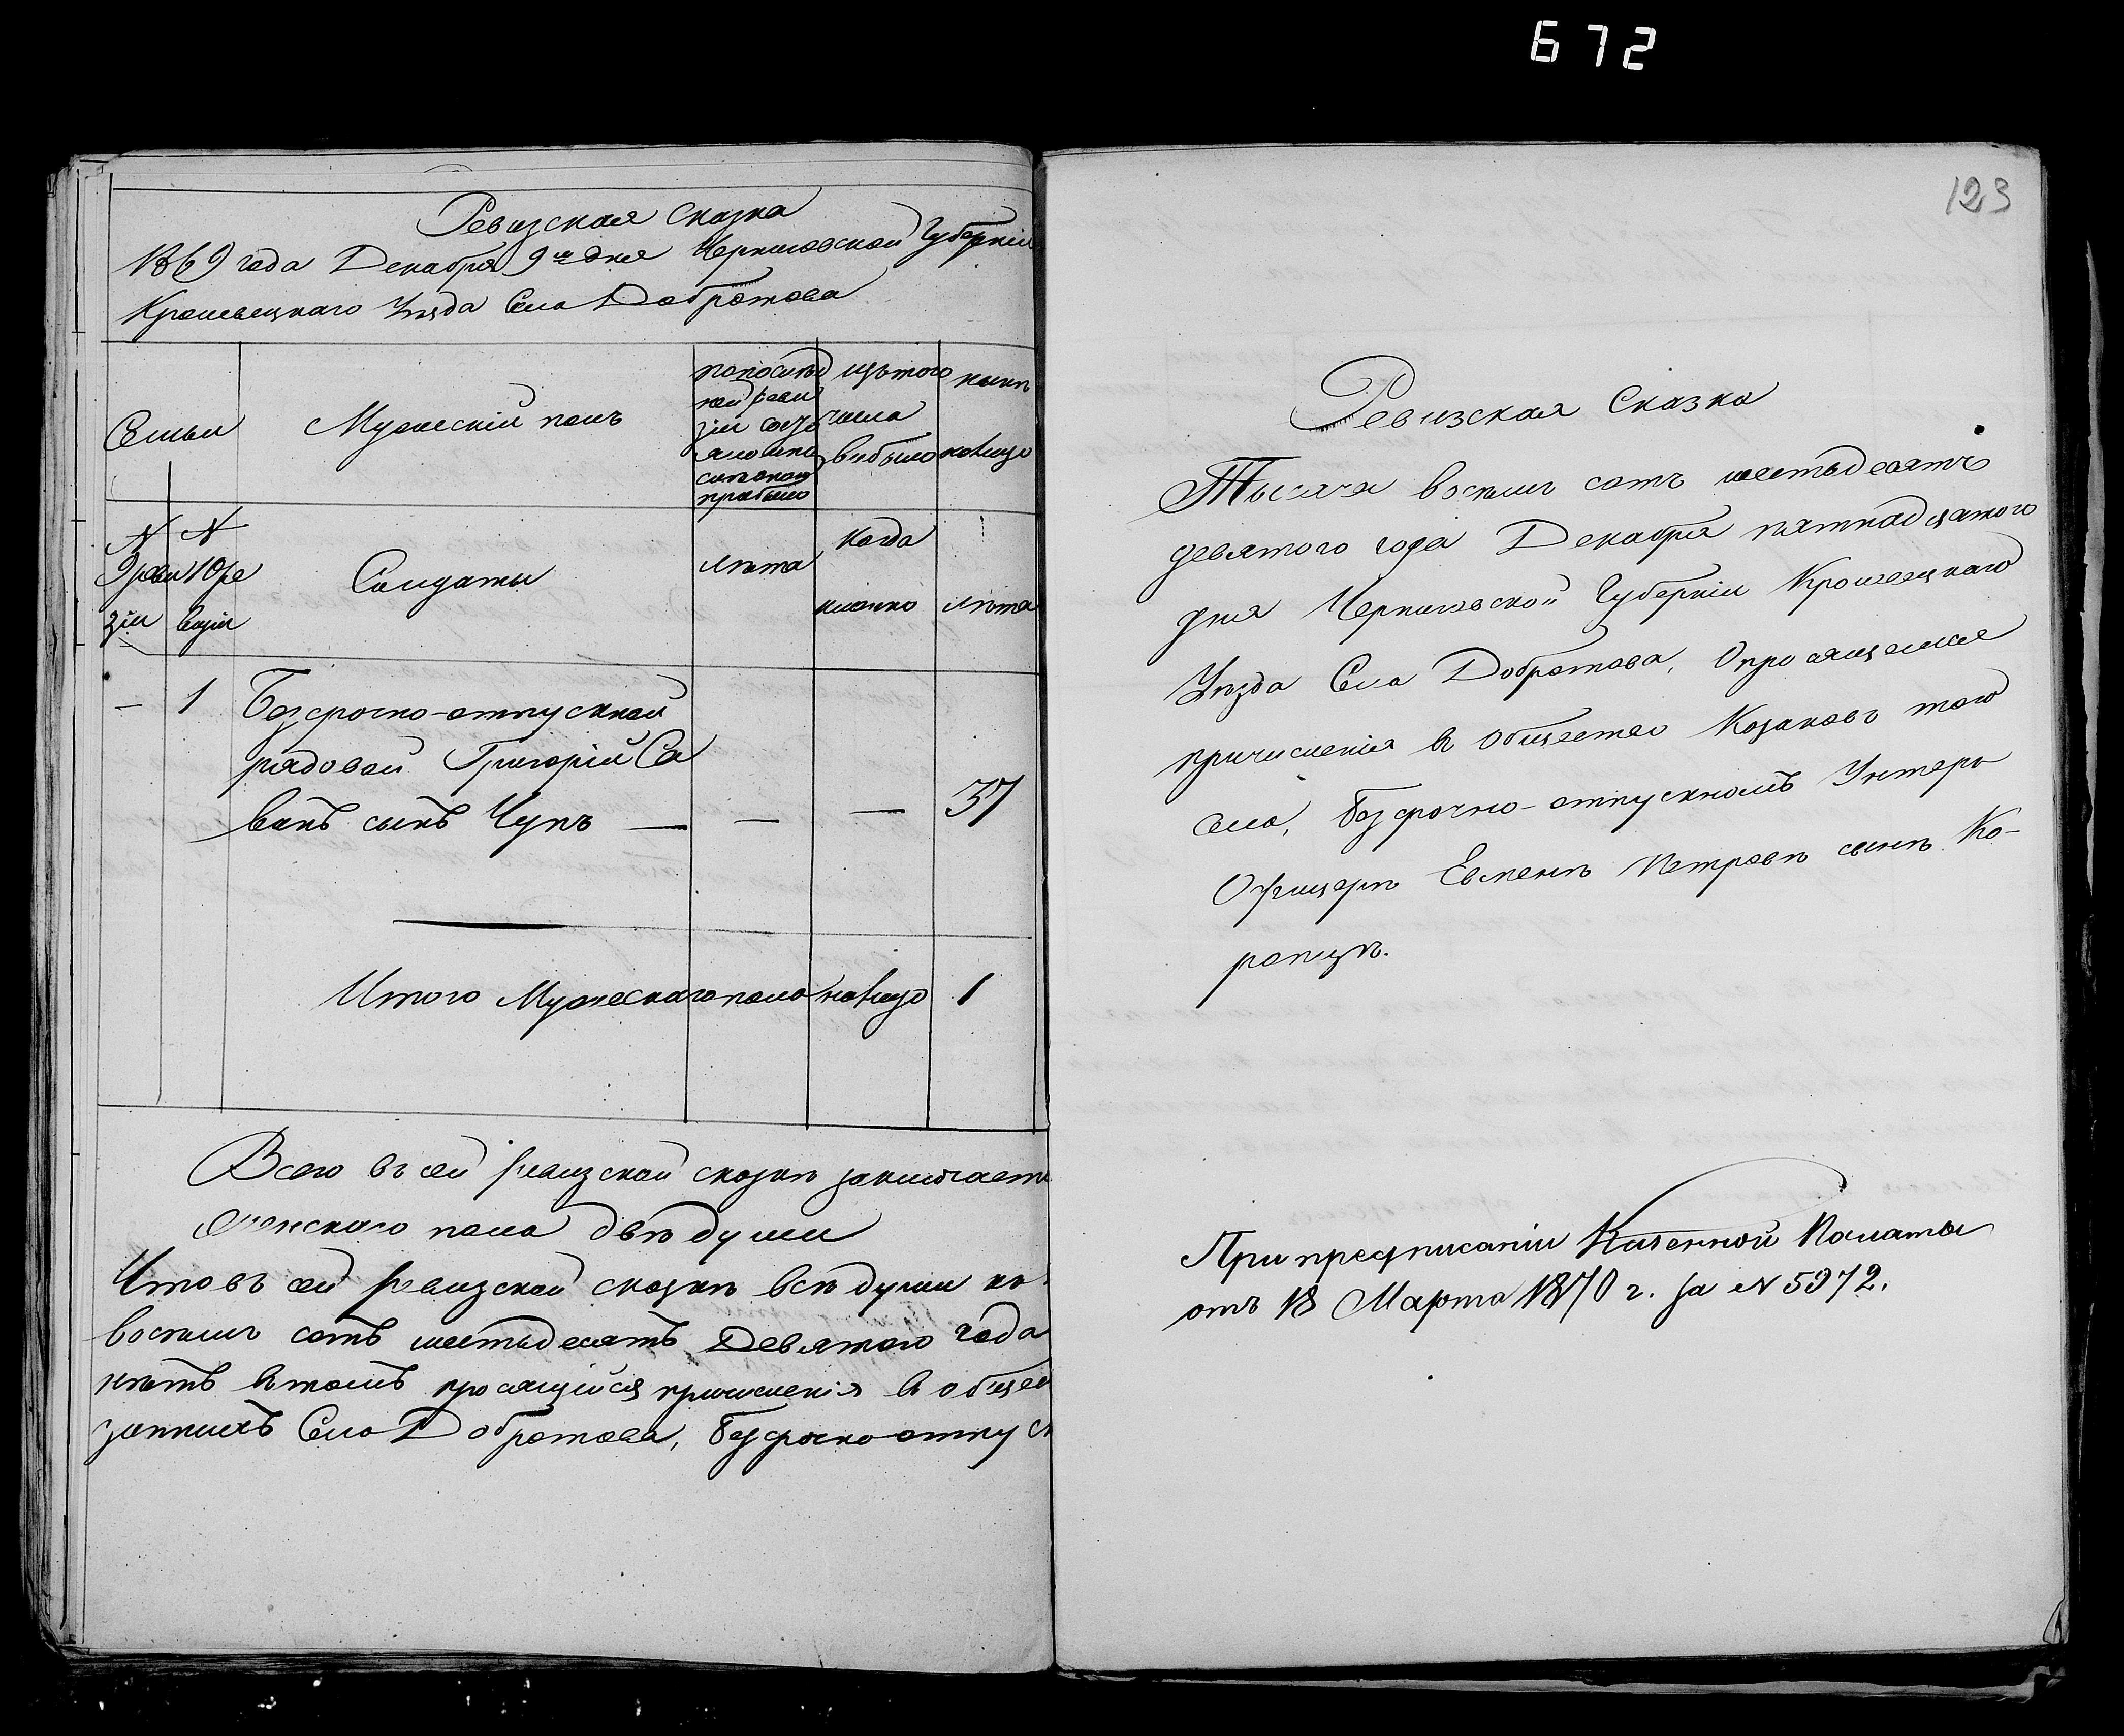 672
Ревизская Сказка
1869 года Декабря 9го дня Черниговской Губерніи
Кролевецкаго Уѣзда Села Добротова
Семьи
Мужескій полъ
по послѣд
ней реви
зіи состо
яло и по
слѣ оной
прибыло
изъ того
числа
выбыло
нынѣ
налицо
№ №
9 реви 10 ре
зіи визіи
Солдаты
лѣта
когда
именно
лѣта
— 1 Безсрочно-отпускной
рядовой Григорій Са
вовъ сынъ Чупъ — — — 37
Итого Мужескаго пола налицо 1
Всего въ сей ревизской сказкѣ заключаетъ
женскаго пола двѣ души
Что въ сей ревизской сказкѣ всѣ души на
восемь сотъ шестьдесятъ Девятого года
нѣтъ въ томъ просящійся причисленія въ общес
Села Добротова, безсрочно отпуск
123
Ревизская Сказка
Тысяча восемь сотъ шестьдесятъ
девятого года Декабря пятнадцатого
дня Черниговской Губерніи Кролевецкаго
Уѣзда Села Добротова, О просящемся
причисленія въ Общество Козаковъ того
села, безсрочно-отпускномъ Унтеръ
Офицерѣ Евменѣ Петровѣ сынѣ Ко-
ропцѣ.
При предписаніи Казенной Палаты
отъ 18 Марта 1870 г. за № 5972.